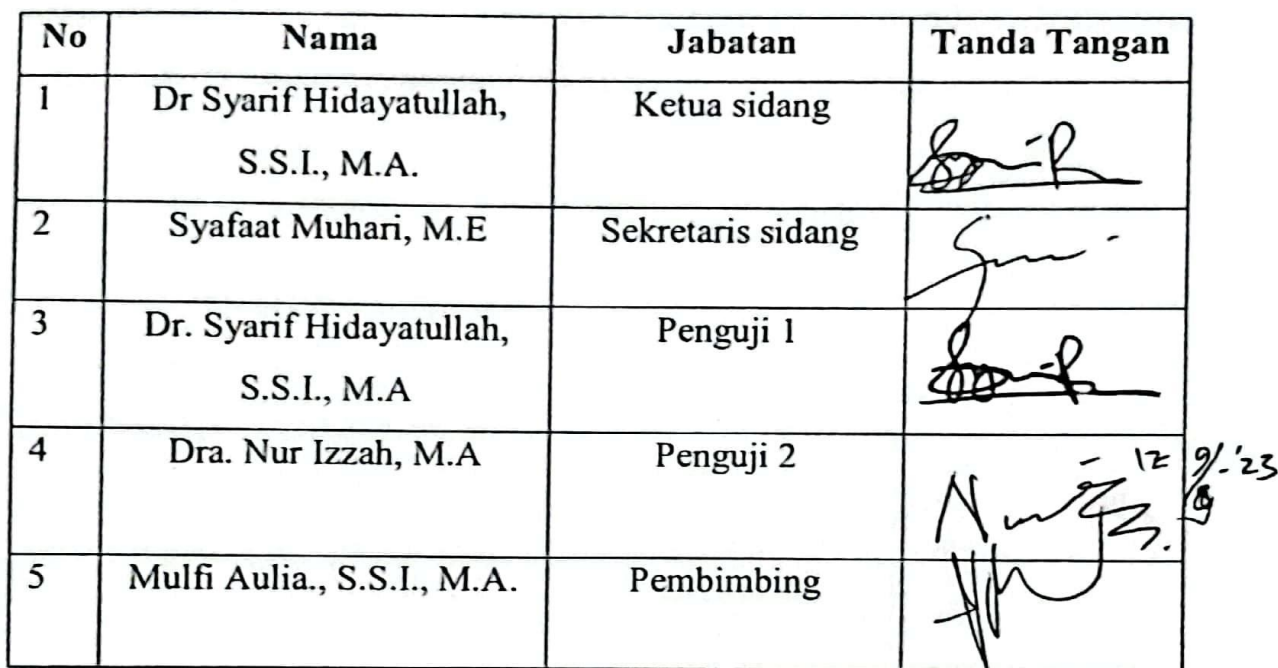 No Nama Jabatan Tanda Tangan
1 Dr Syarif Hidayatullah, Ketua sidang
S.S.I., M.A.
2 Syafaat Muhari, M.E Sekretaris sidang
3 Dr. Syarif Hidayatullah, Penguji 1
S.S.I., M.A
4 Dra. Nur Izzah, M.A Penguji 2
12 9/-'23
5 Mulfi Aulia., S.S.I., M.A. Pembimbing